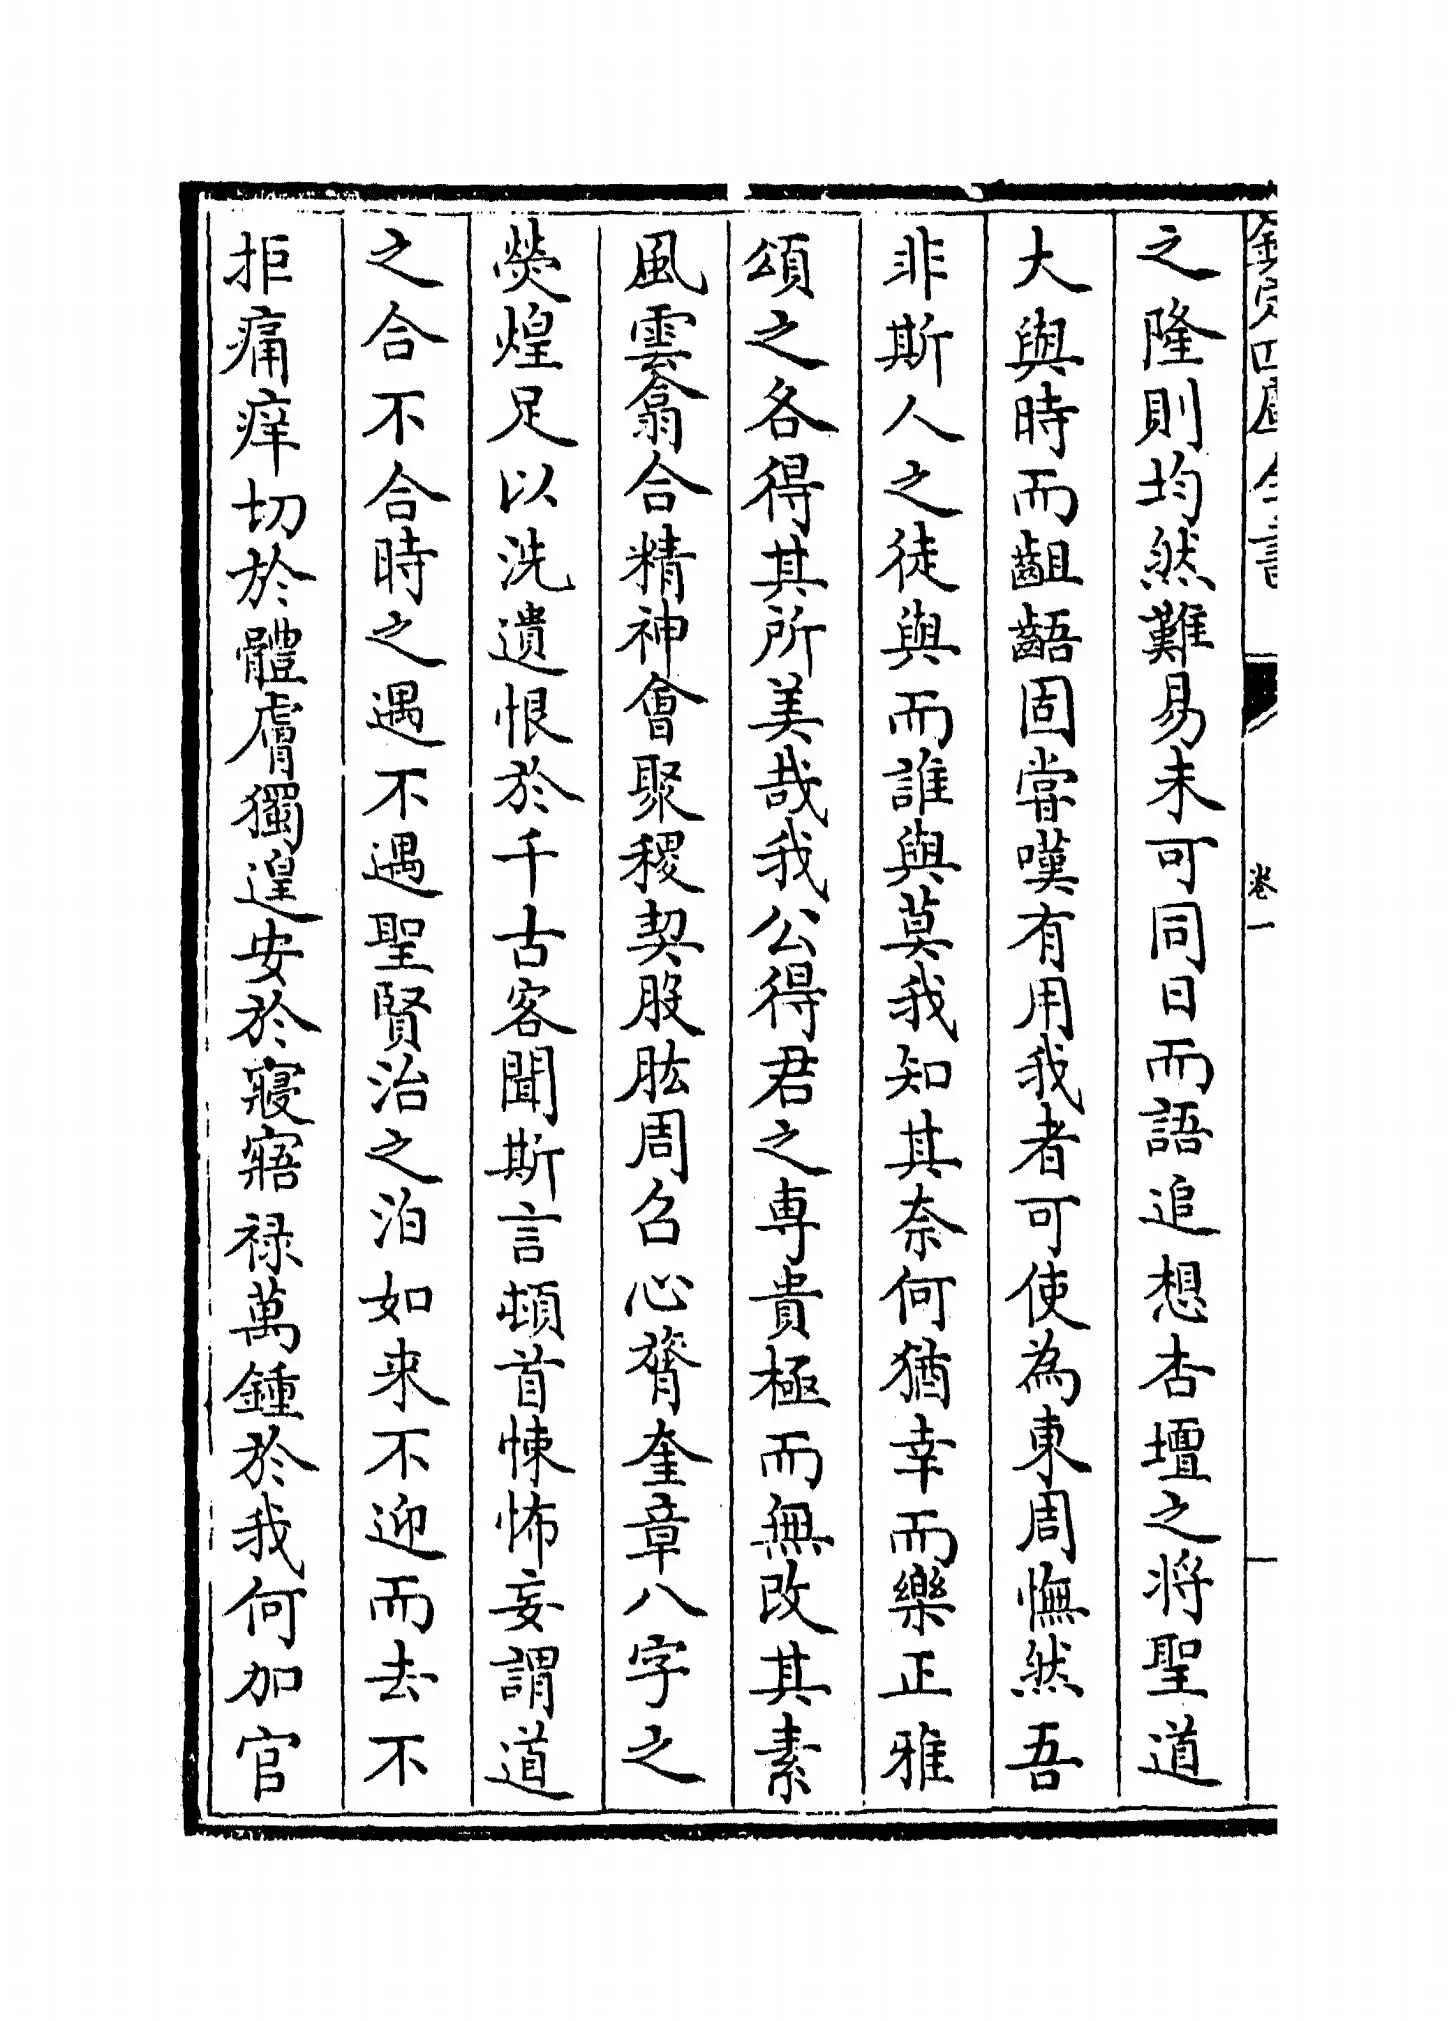 欽定四庫全書
卷一
之隆則均然難易未可同日而語追想杏壇之將聖道
大與時而齟齬固嘗嘆有用我者可使為東周憮然吾
非斯人之徒與而誰與莫我知其奈何猶幸而樂正雅
頌之各得其所美哉我公得君之專貴極而無改其素
風雲翕合精神會聚稷契股肱周召心膂奎章八字之
熒煌足以洗遺恨於千古客聞斯言頓首悚怖妄謂道
之合不合時之遇不遇聖賢治之泊如来不迎而去不
拒痛痒切於體膚獨遑安於寢寤禄萬鍾於我何加官